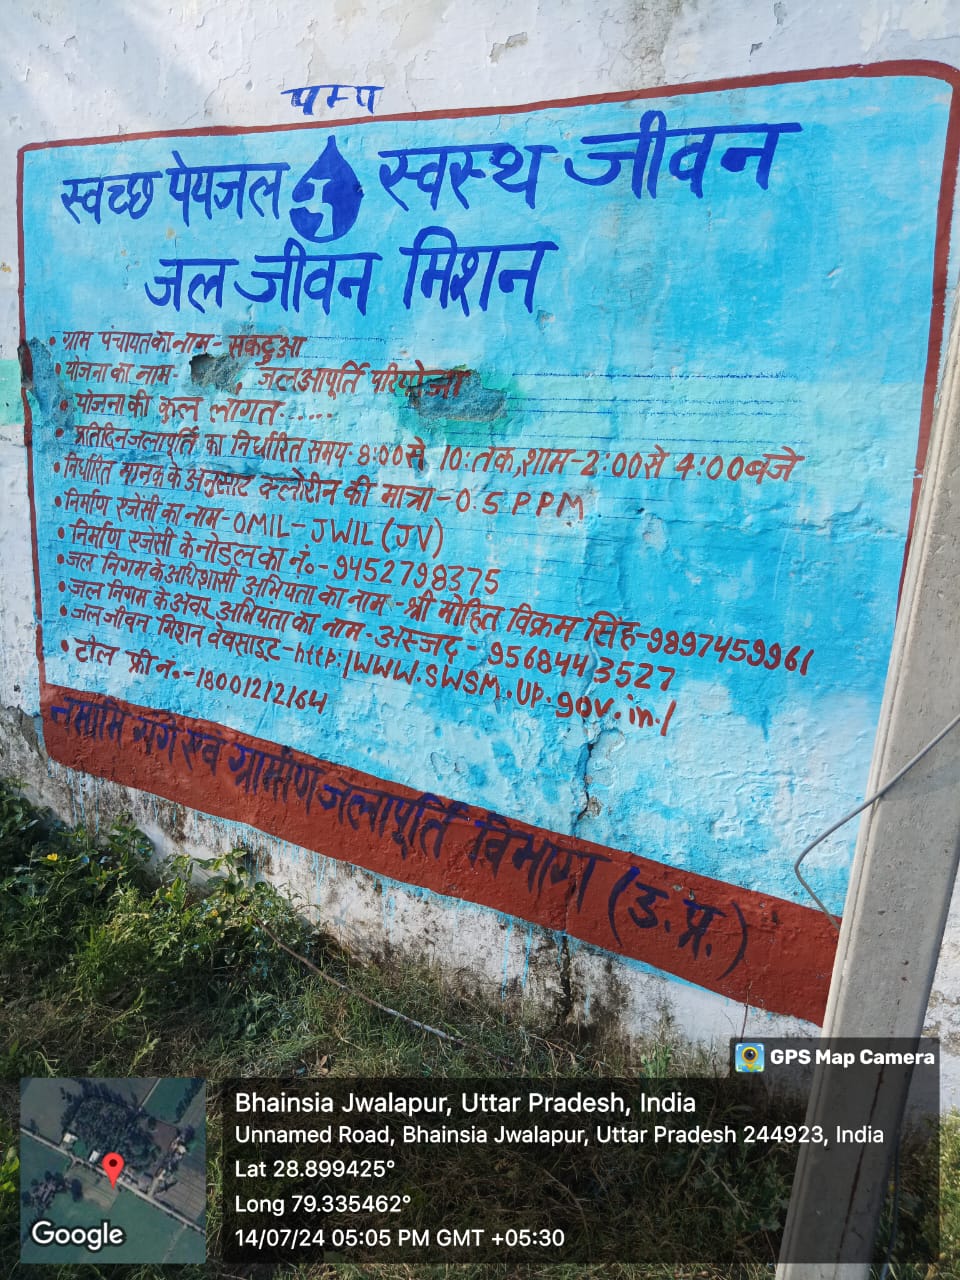 पम्प
स्वच्छ पेयजल स्वस्थ जीवन
जल जीवन मिशन
• ग्राम पंचायत का नाम - सकटुआ
• योजना का नाम - जलआपूर्ति परियोजा
• योजना की कुल लागत......
• प्रतिदिन जलापूर्ति का निर्धारित समय - 8:00 से 10: तक, शाम - 2:00 से 4:00 बजे
• निर्धारित मानक के अनुसार क्लोरीन की मात्रा - 0.5 PPM
• निर्माण एजेंसी का नाम - OMIL - JWIL (JV)
• निर्माण एजेंसी के नोडल का नं०- 9452798375
• जल निगम के अधिशासी अभियंता का नाम - श्री मोहित विक्रम सिंह - 9897459961
• जल निगम के अवर अभियंता का नाम - अस्जद - 9568443527
• जल जीवन मिशन वेवसाइट - http:/www.SWSM.UP.gov.in./
• टोल फ्री नं.- 18001212164
नमामि गंगे एवं ग्रामीण जलापूर्ति विभाग (उ.प्र.)
GPS Map Camera
Bhainsia Jwalapur, Uttar Pradesh, India
Unnamed Road, Bhainsia Jwalapur, Uttar Pradesh 244923, India
Lat 28.899425°
Long 79.335462°
14/07/24 05:05 PM GMT +05:30
Google